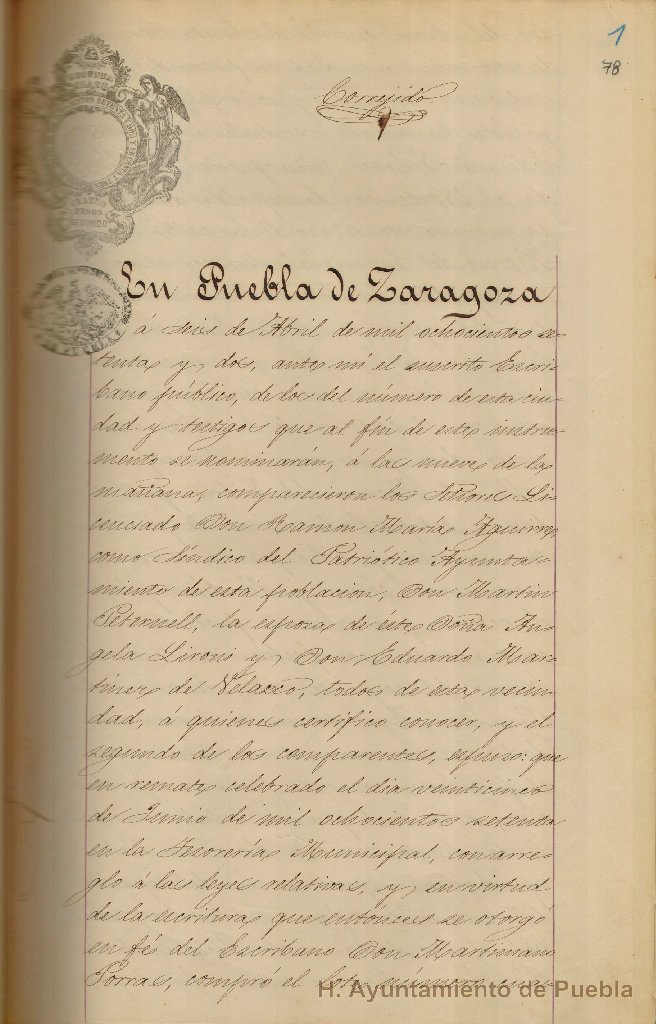 1
78
Correjido
En Puebla de Zaragoza
á seis de Abril de mil ochocientos se-
tenta y dos, ante mí el suscrito Escri-
bano público, de los del número de esta ciu-
dad y testigos que al fin de este instru-
mento se nominarán, á las nueve de la
mañana, comparecieron los Señores Li-
cenciado Don Ramon María Aguirre
como Síndico del Patriótico Ayunta-
miento de esta poblacion, Don Martin
Peternell, la esposa de éste Doña An-
gela Lironi y Don Eduardo Mar-
tinez de Velasco, todos de esta vecin-
dad, á quienes certifico conocer, y el
segundo de los comparentes, espuso: que
en remate celebrado el dia veinticinco
de Junio de mil ochocientos setenta
en la Tesorería Municipal, con arre-
glo á las leyes relativas, y en virtud
de la escritura que entonces se otorgó
en fé del Escribano Don Martiniano
Porras, compró el lote número
H. Ayuntamiento de Puebla